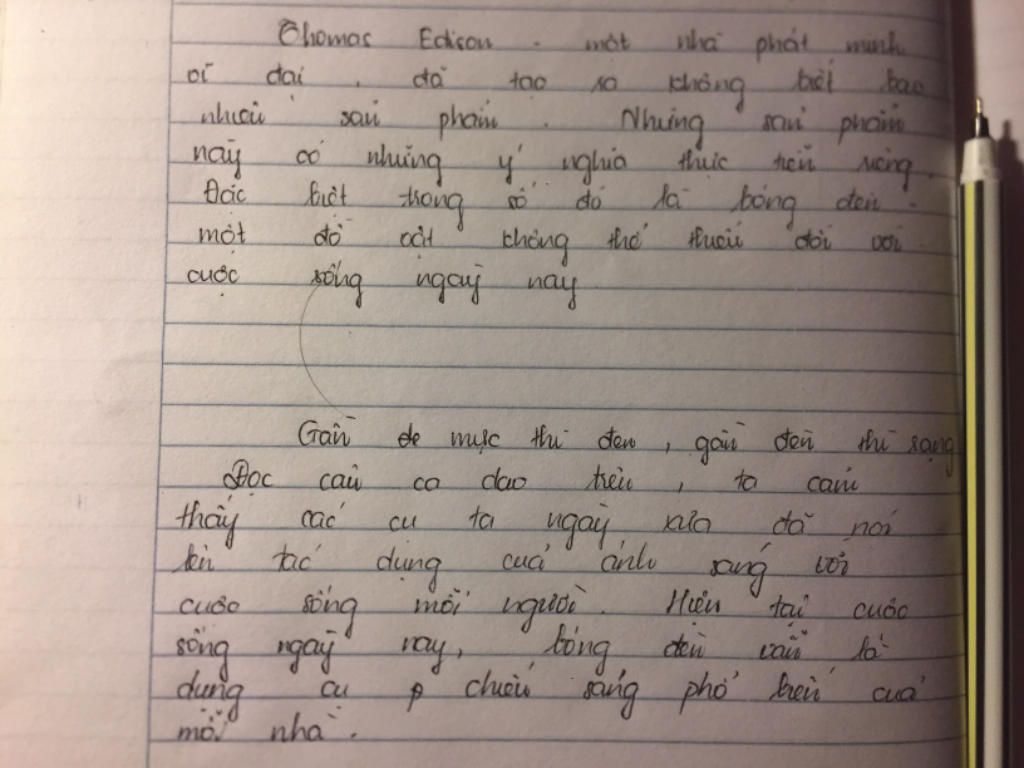 Thomas Edison - một nhà phát minh
vĩ đại, đã tạo ra không biết bao
nhiêu sản phẩm. Những sản phẩm
này có những ý nghĩa thực tiễn riêng.
Đặc biệt trong số đó là bóng đèn -
một đồ vật không thể thiếu đối với
cuộc sống ngày nay
Gần đe mực thì đen, gần đèn thì sạng
Đọc câu ca dao trên, ta cảm
thấy các cụ ta ngày xưa đã nói
lên tác dụng của ánh sáng với
cuộc sống mỗi người. Hiện tại cuộc
sống ngày nay, bóng đèn vẫn là
dụng cụ chiếu sáng phổ biến của
mỗi nhà.